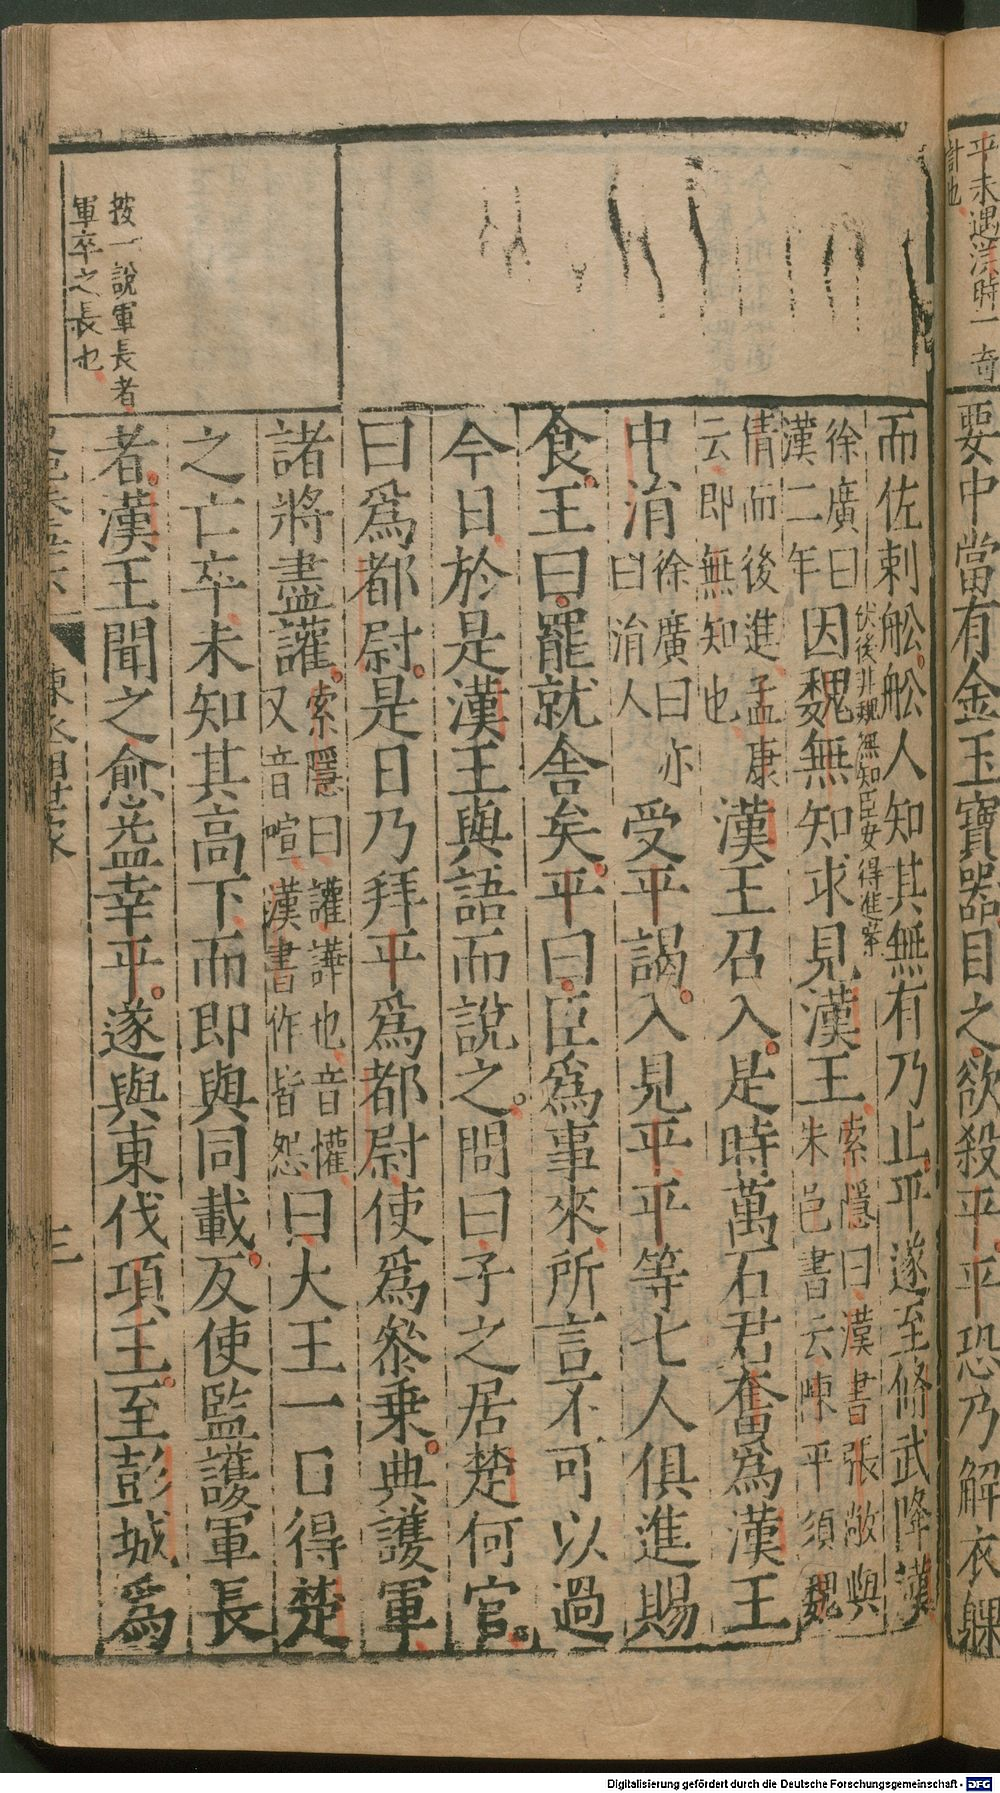 平未遇漢時一奇
計也
要中當有金玉寶器目之欲殺平平恐乃解衣躶
而佐刺舩舩人知其無有乃止平遂至修武降漢
徐廣曰
漢二年
伏後非魏無知臣安得進案
因魏無知求見漢王
索隱曰漢書張敞與
朱邑書云陳平須魏
倩而後進孟康
云即無知也
漢王召入是時萬石君奮爲漢王
中涓
徐廣曰亦
曰涓人
受平謁入見平平等七人俱進賜
食王曰罷就舍矣平曰臣爲事來所言不可以過
今日於是漢王與語而說之問曰子之居楚何官
曰爲都尉是日乃拜平爲都尉使爲參乘典護軍
諸將盡讙
索隱曰讙譁也音懽
又音喧漢書作皆怨
曰大王一日得楚
之亡卒未知其高下而即與同載反使監護軍長
按一說軍長者
軍卒之長也
者漢王聞之愈益幸平遂與東伐項王至彭城爲
陳丞相世家
三
Digitalisierung gefördert durch die Deutsche Forschungsgemeinschaft - DFG